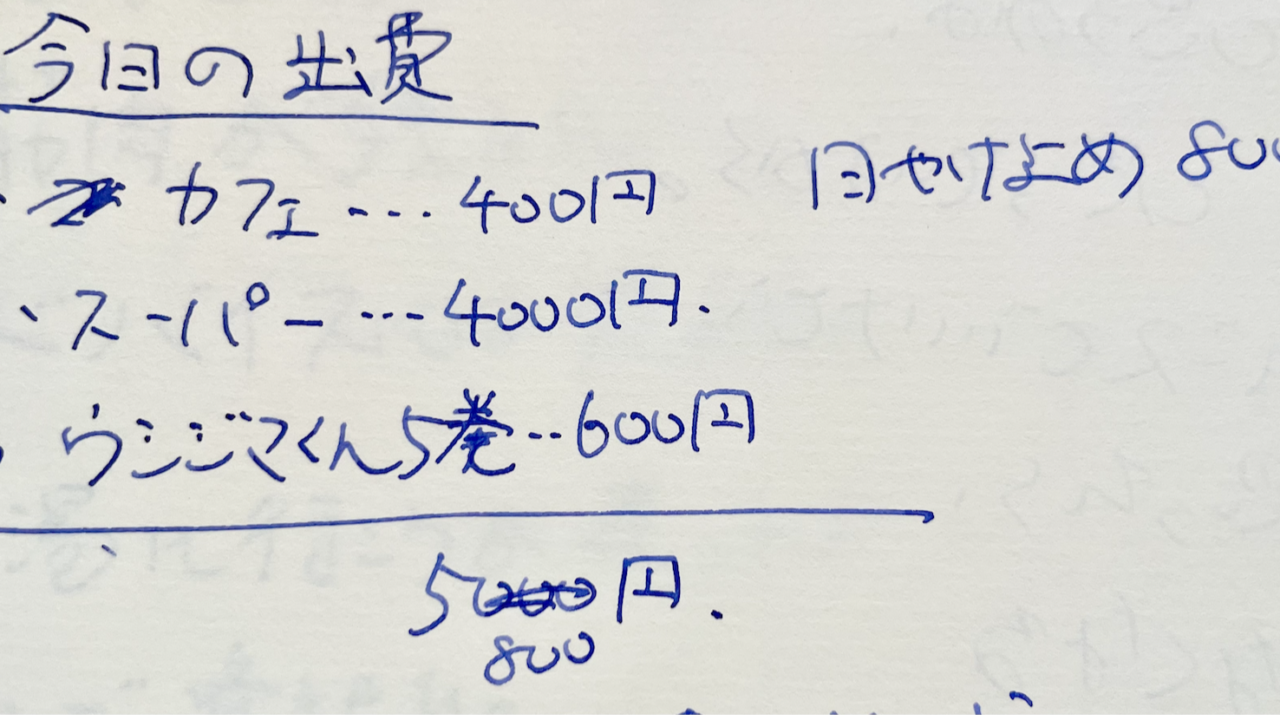 今日の出費
・カフェ…400円
・スーパー…4000円.
・ウシジマくん5巻‥600円
5000円.
800
日やけどめ 800